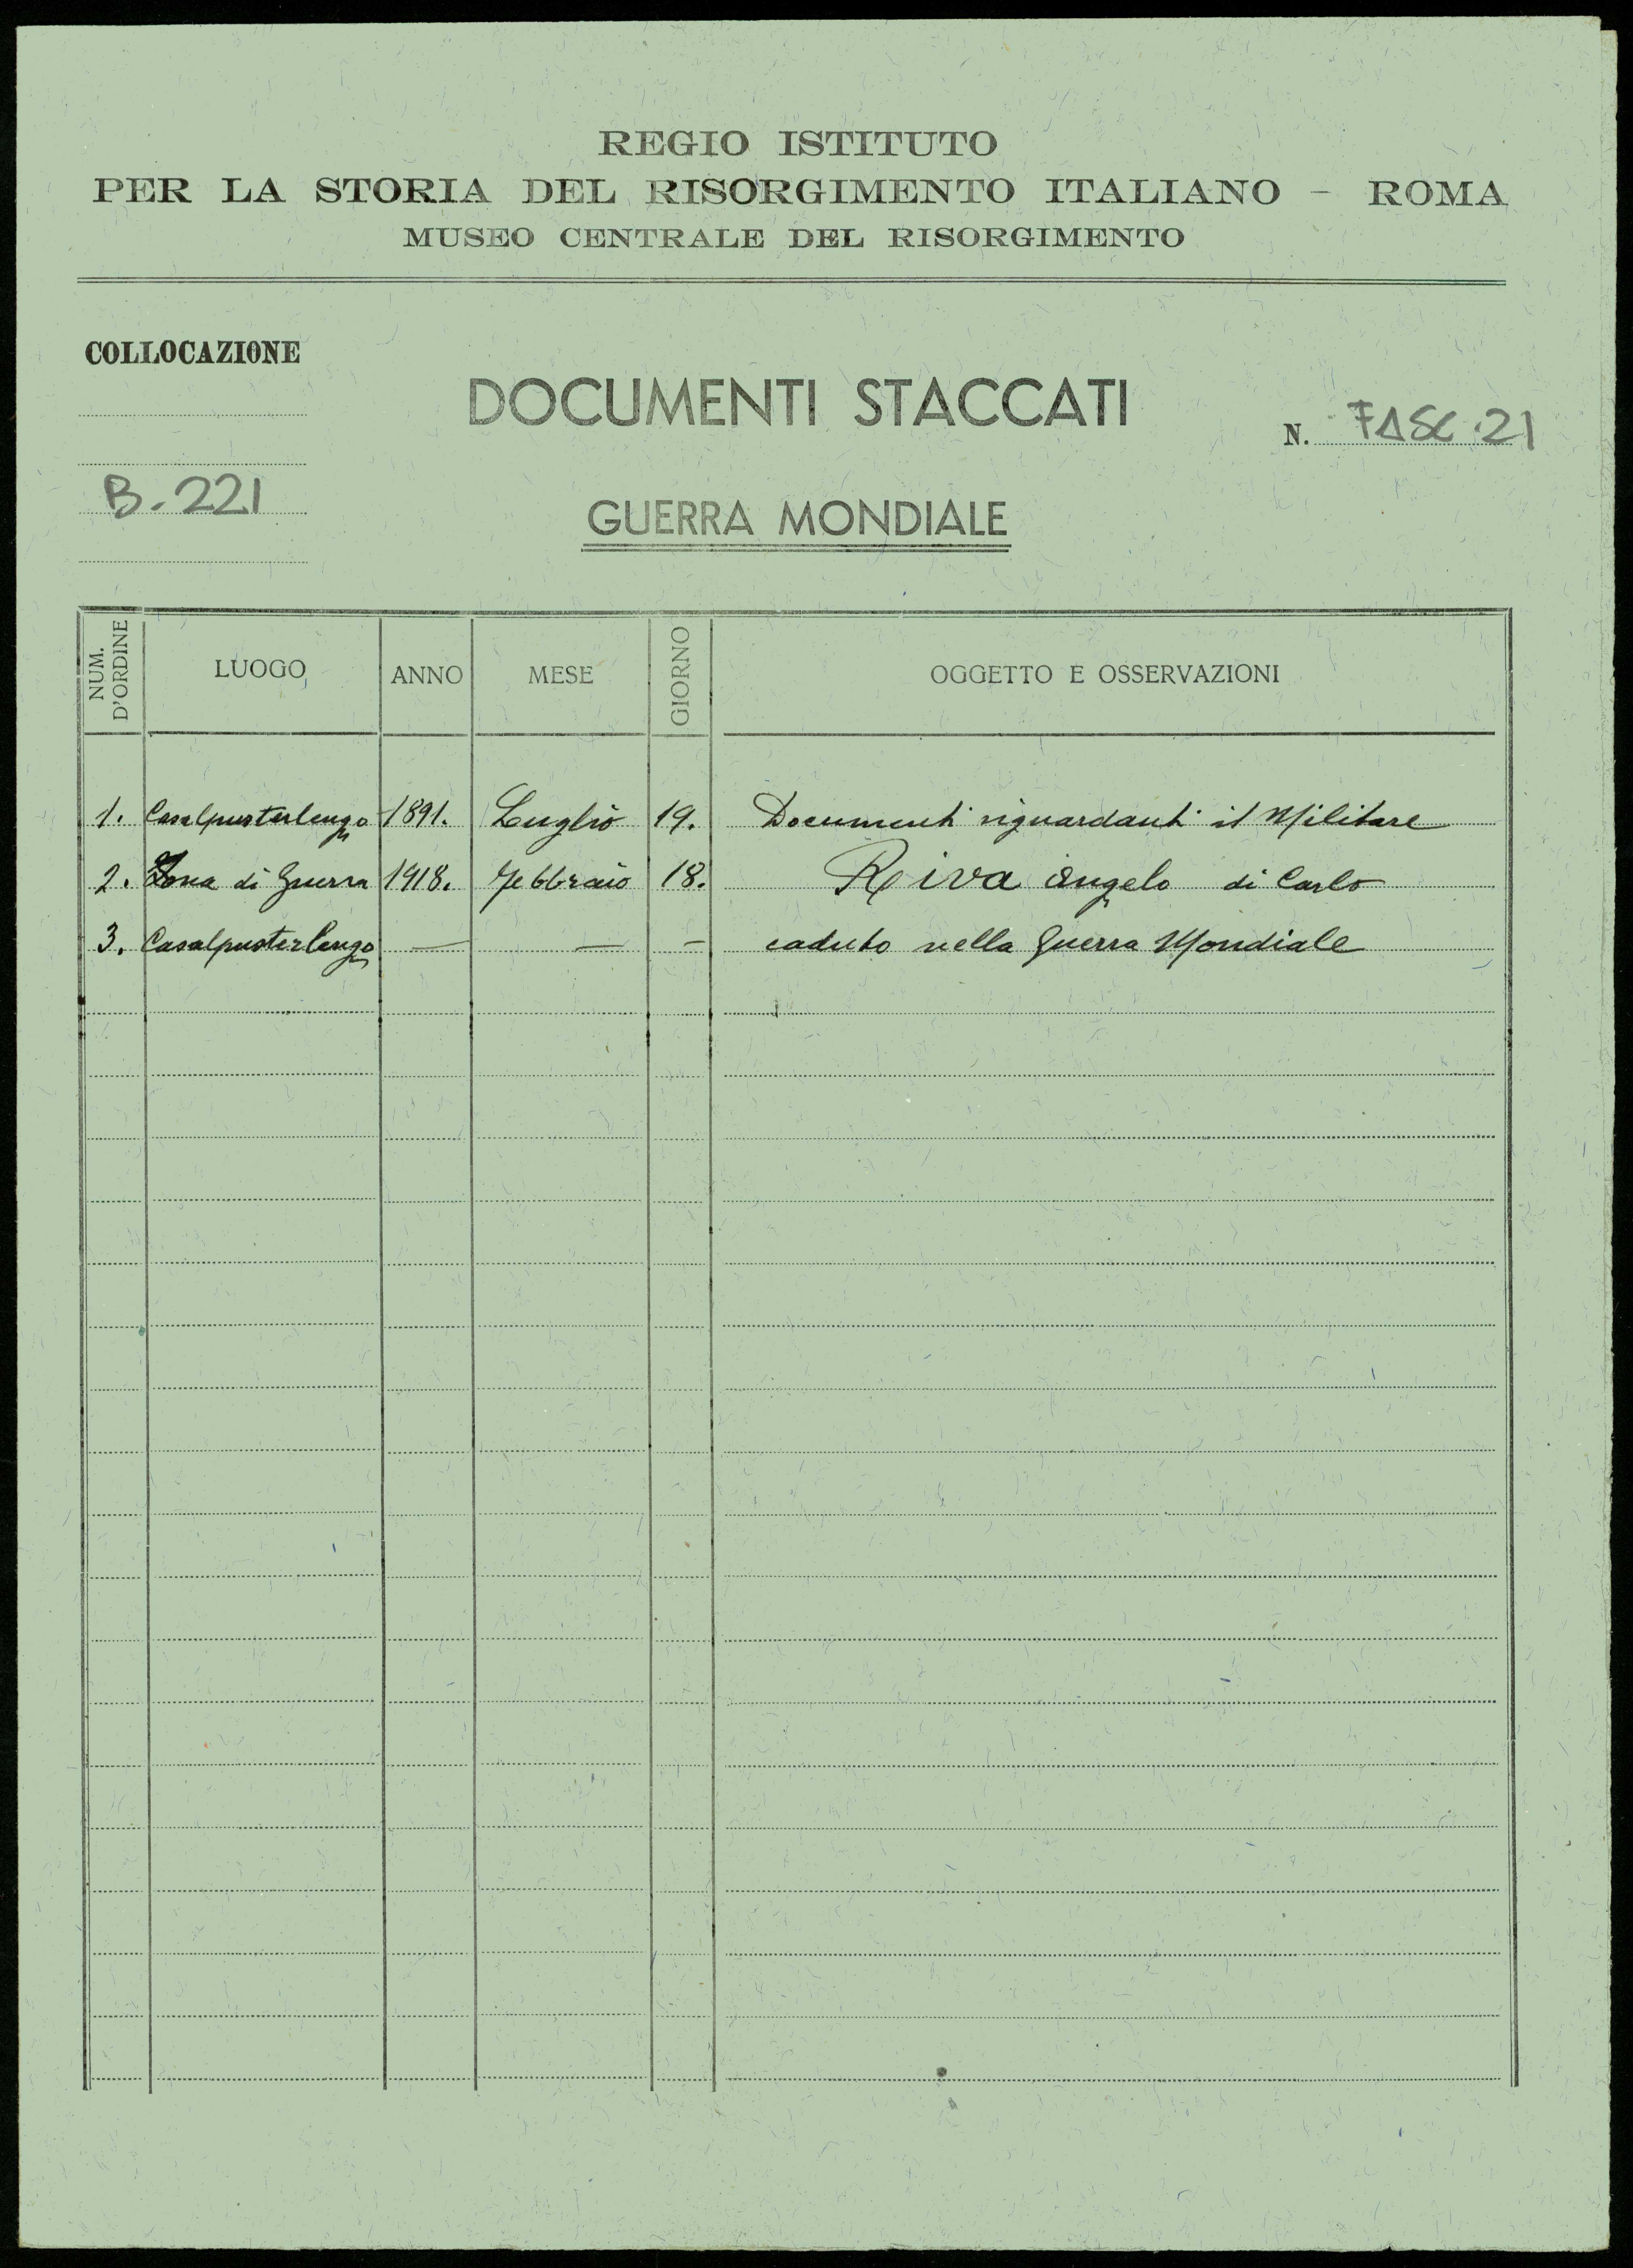 REGIO ISTITUTO
PER LA STORIA DEL RISORGIMENTO ITALIANO - ROMA
MUSEO CENTRALE DEL RISORGIMENTO
COLLOCAZIONE
DOCUMENTI STACCATI
N. FASC. 21
B. 221
GUERRA MONDIALE
NUM. D'ORDINE LUOGO ANNO MESE GIORNO OGGETTO E OSSERVAZIONI
1. Casalpusterlengo 1891. Luglio 19. Documenti riguardanti il Militare
2. Zona di Guerra 1918. Febbraio 18. Riva Angelo di Carlo
3. Casalpusterlengo — — — caduto nella Guerra Mondiale